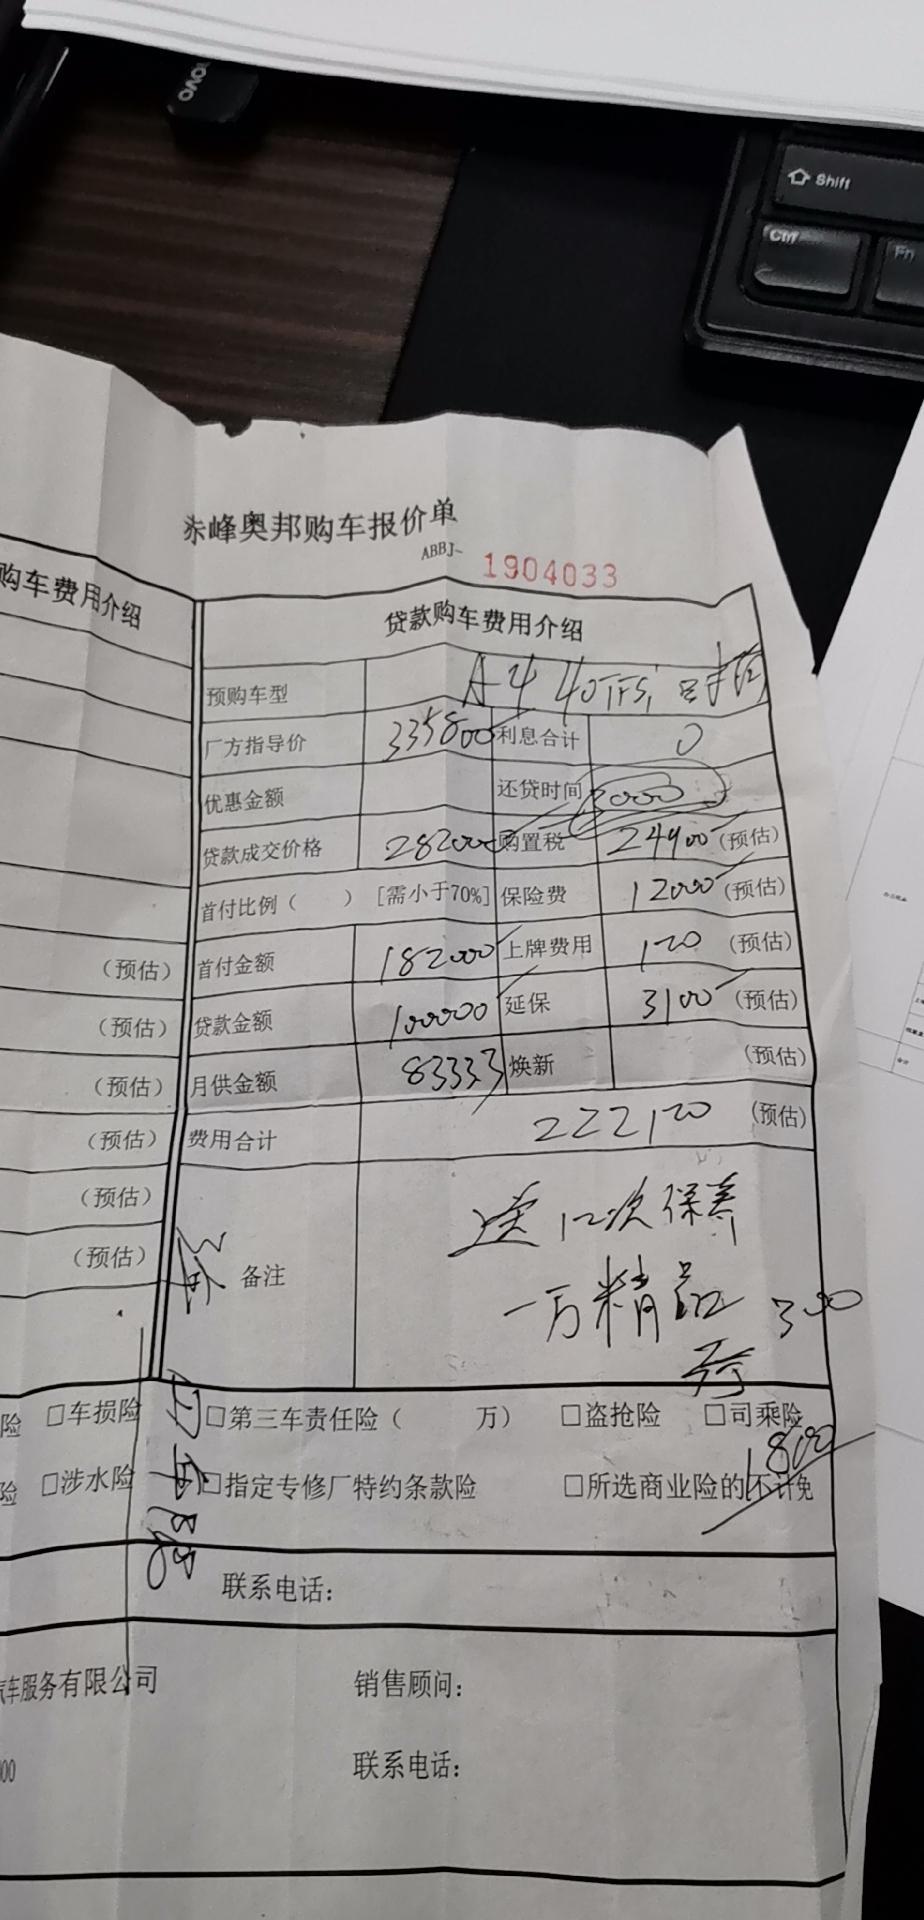 OVO
Shift
Ctrl
Fn
赤峰奥邦购车报价单
ABBJ-
1904033
购车费用介绍
贷款购车费用介绍
预购车型 A4 40TFSi 时尚
厂方指导价 335800 利息合计 0
优惠金额 还贷时间 3000
贷款成交价格 282000 购置税 24900 (预估)
首付比例( ) [需小于70%] 保险费 12000 (预估)
(预估) 首付金额 182000 上牌费用 120 (预估)
(预估) 贷款金额 100000 延保 3100 (预估)
(预估) 月供金额 83333 焕新 (预估)
(预估) 费用合计 222120 (预估)
(预估)
(预估)
备注
送12次保养
一万精品
险 □车损险 □第三车责任险( 万) □盗抢险 □司乘险
1800
险 □涉水险 □指定专修厂特约条款险 □所选商业险的不计免
联系电话:
汽车服务有限公司 销售顾问:
00 联系电话: